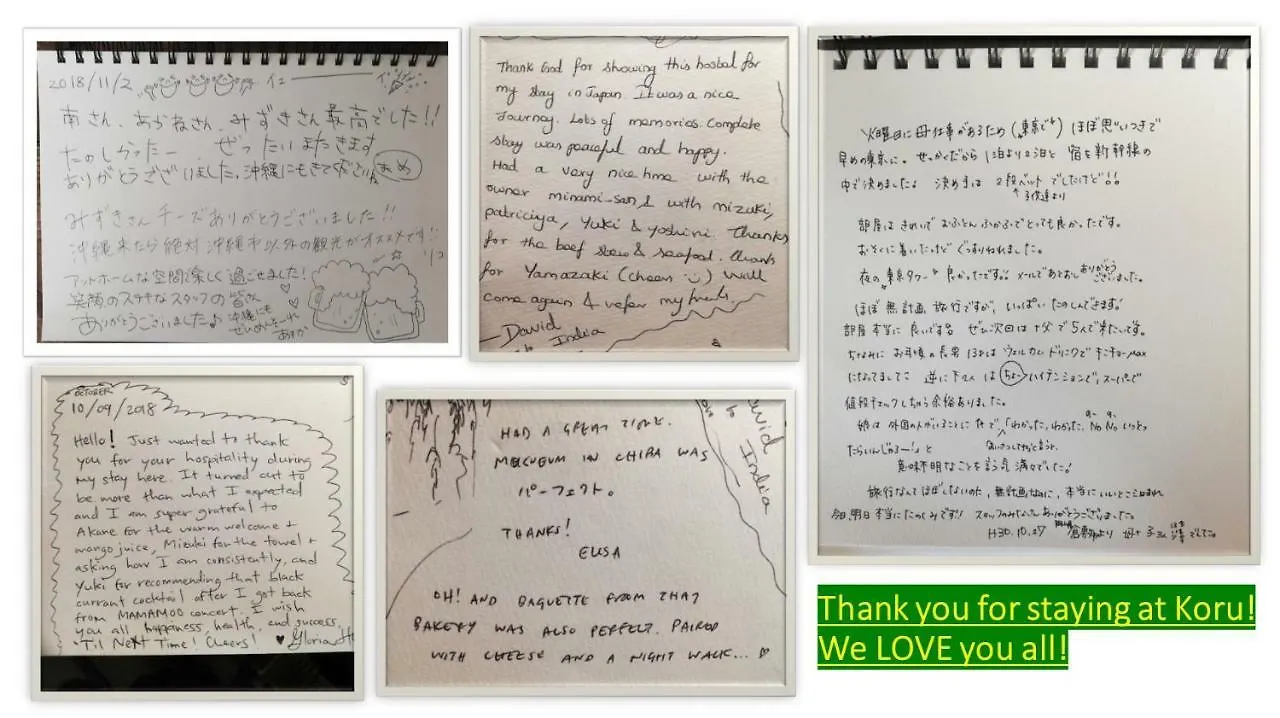 2018/11/2
南さん、あかねさん、みずきさん最高でした!!
たのしかったー、ぜったいまたきます
ありがとうございました。沖縄にもきてください
みずきさんチーズありがとうございました!!
沖縄来たら絶対沖縄市以外の観光がオススメです!!
アットホームな空間で楽しく過ごせました!
笑顔のステキなスタッフの皆さん
ありがとうございました
沖縄にも
Thank God for showing this hostel for
my stay in Japan. It was a nice
Journey. Lots of memories. Complete
stay was peaceful and happy.
Had a very nice time with the
owner minami-san & with mizuki,
patriciya, Yuki & Yoshini. Thanks
for the beef stew & seafood. thanks
for Yamazaki (cheers :-)) will
come again & refer my friends.
David
India
火曜日に母仕事があるため(東京で)ほぼ思いつきで
早めの東京に。せっかくだから1泊より2泊と宿を新幹線の
中で決めました。決め手は2段ベットでしたけど!!
子供達より
部屋はきれいでおふとんふかふかでとっても良かったです。
おそくに着いたけどぐっすりねれました。
夜の東京タワー良かったです。メールで
ありがとうございました。
ほぼ無計画旅行ですが、いっぱいたのしんできます。
部屋本当に良いです ぜひ次回は+父で5人で来たいです。
ちなみにお年頃の長男13才はウェルカムドリンクで
逆に下2人はちょーハイテンションで、スーパーで
値段チェックしちゃう余裕ありました。
娘は外国の人がいることに
「わかった、わかった、No No いっ
たらいんじゃろー!」と
意味不明なことを言う気満々でした!
旅行なんてほぼしないので、無計画なのに、本当にいいとこ
今日、明日本当にたのしみです!! スタッフのみなさんありがとうございました。
H30.10.27
OCTOBER
10/09/2018
Hello! Just wanted to thank
you for your hospitality during
my stay here. It turned out to
be more than what I expected
and I am super grateful to
Akane for the warm welcome +
mango juice, Mizuki for the towel +
asking how I am consistently, and
Yuki for recommending that black
currant cocktail after I got back
from MAMAMOO concert. I wish
you all happiness, health, and success.
'Til Next Time! Cheers! ♥ Gloria
HAD A GREAT TIME.
IN CHIBA WAS
パーフェクト。
THANKS!
ELISA
OH! AND BAGUETTE FROM THAT
BAKERY WAS ALSO PERFECT. PAIRED
WITH CHEESE AND A NIGHT WALK... ♡
David
India
Thank you for staying at Koru!
We LOVE you all!